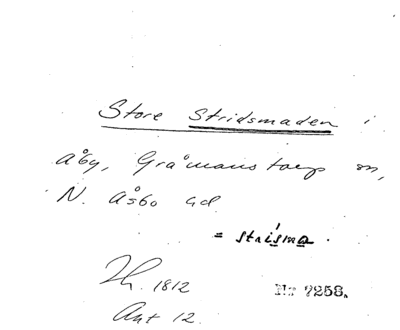 Store Stridsmaden i
Åby, Gråmanstorps sn,
N. Åsbo hd
= strisma.
1812
Akt 12.
No 7258.